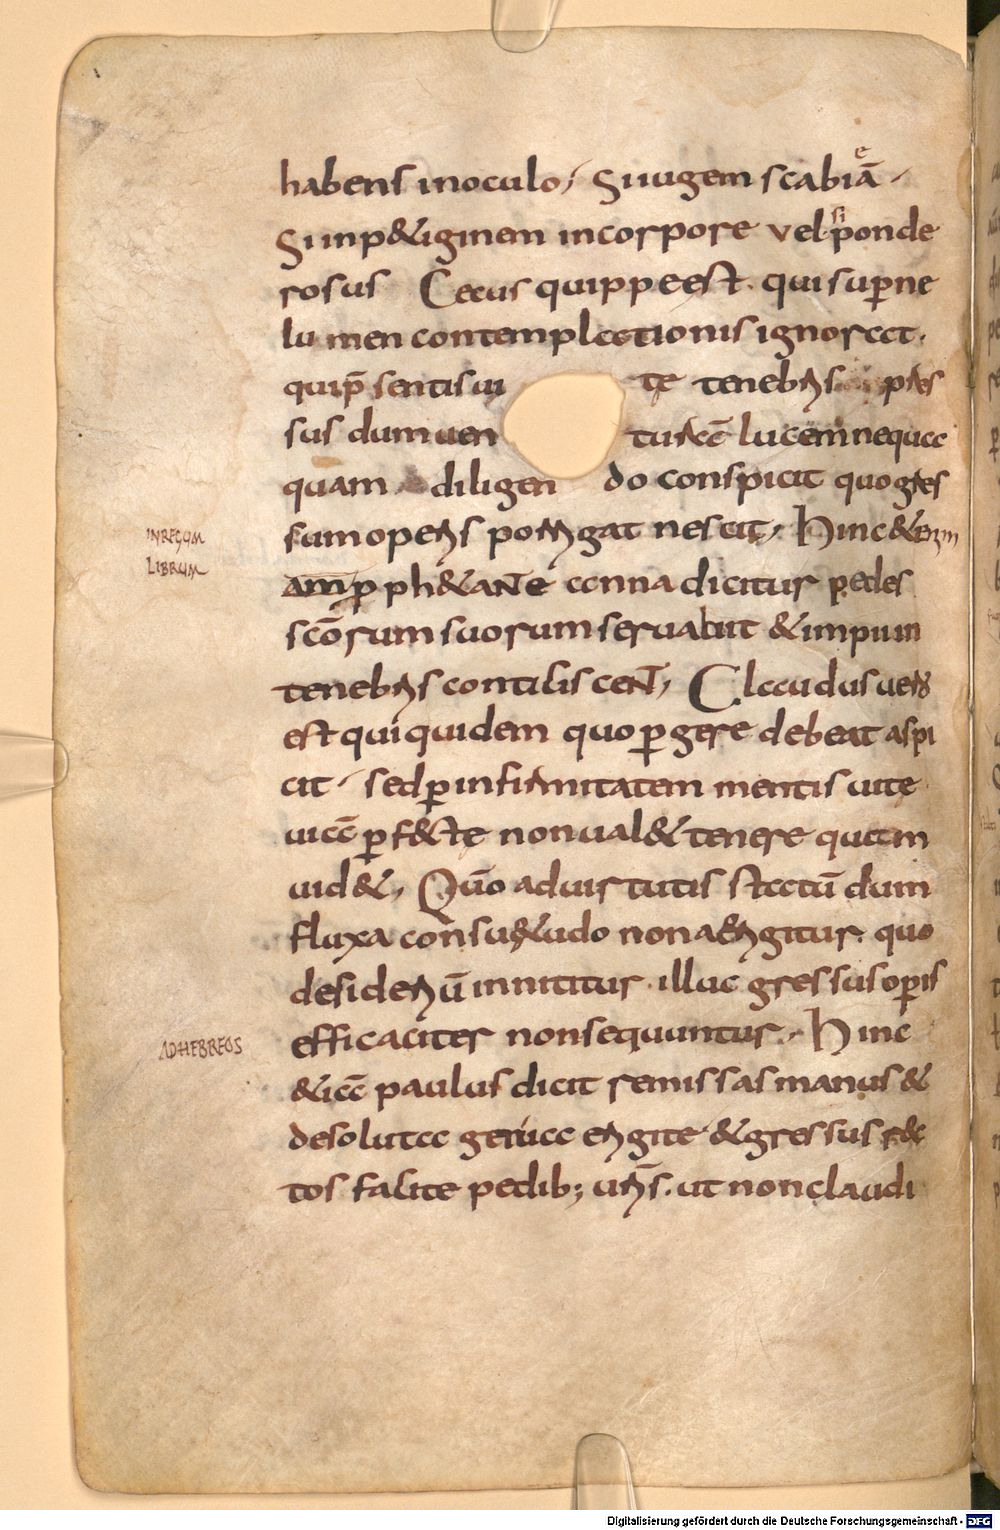 habens in oculo, Si iugem scabiēā.
Si inp&iginem in corpore vel si ponde
rosus Cecus quippe est. qui supne
lumen contemplationis ignorat.
quip̄ sentis ui te tenebris p̄es
sus dum uen turā lucem nequa
quam diligen do conspicit quo gres
sum operis porrigat nescit, Hinc &enim
p ph&ante anna dicitur pedes
scōrum suorum seruabit & impii in
tenebris contiliscent, Claudus uero
est qui quidem quo pgere debeat aspi
cit. sed p infirmitatem mentis uite
uiā pf&te non ual& tenere quam
uid&, Quō ad uirtutis statū dum
fluxa consu&udo non aerigitur. quo
desideriū innititur. illuc gressus opis
efficaciter non sequuntur. Hinc
&iā paulus dicit remissas manus &
desoluta genua erigite & gressus rec
tos facite pedib; uris. ut non claudi
IN REGUM
LIBRUM
AD HEBREOS
Digitalisierung gefördert durch die Deutsche Forschungsgemeinschaft - DFG